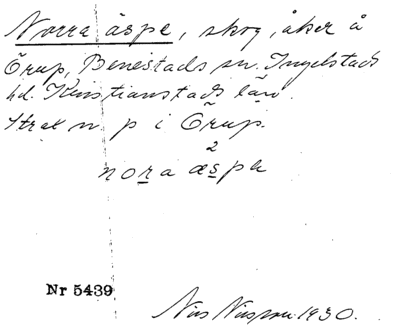 Norra äspe, skog, åker å
Örup, Benestads sn. Ingelstads
hd. Kristianstads län.
Strax n. p i Örup.
2
nora æspe
Nr 5439
Nils Nilsson 1930.